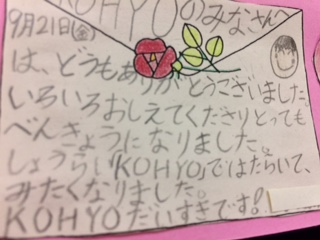 KOHYOのみなさんへ
9月21日(金)
は、どうもありがとうございました。
いろいろおしえてくださりとっても
べんきょうになりました。
しょうらい「KOHYO」ではたらいて、
みたくなりました。
KOHYOだいすきです!